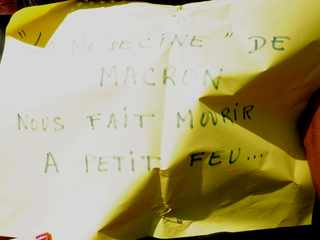 "LA MEDECINE" DE
MACRON
NOUS FAIT MOURIR
A PETIT FEU...